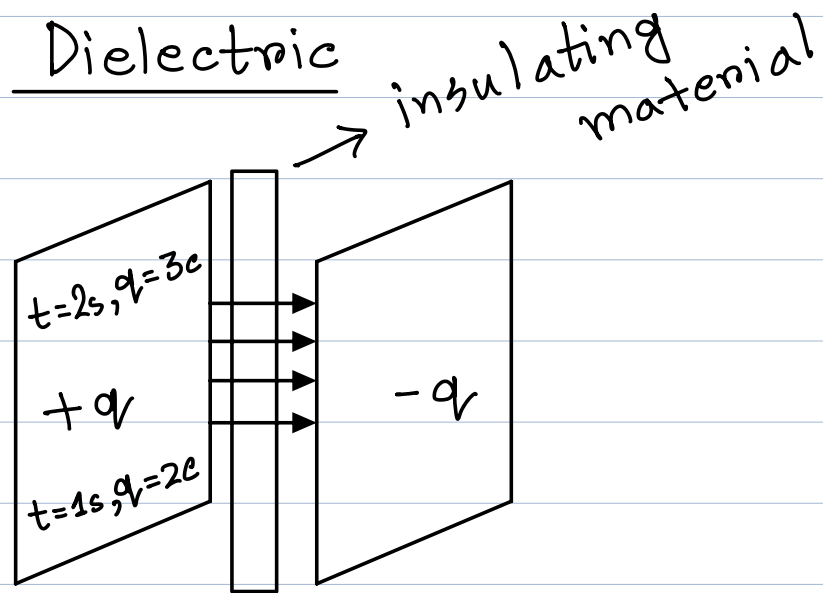 Dielectric
insulating
material
t=2s, q=3c
+q
-q
t=1s, q=2c